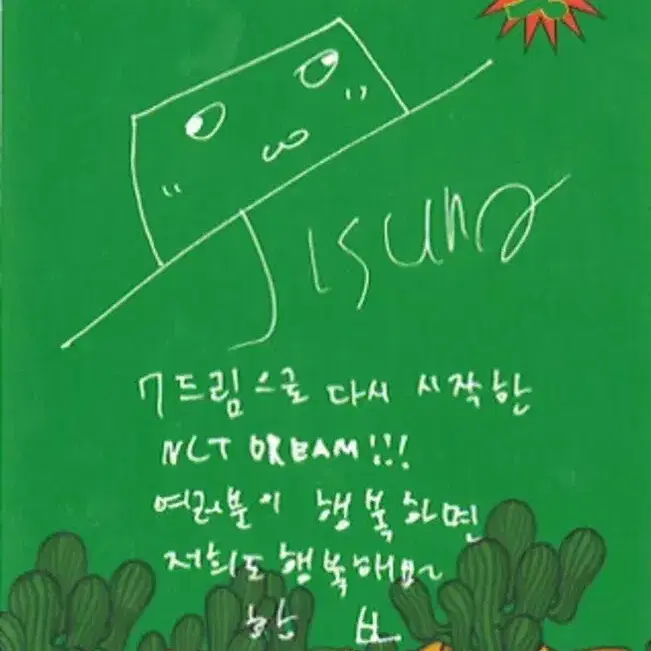 Jisung
7드림으로 다시 시작한
NCT DREAM!!!
여러분이 행복하면
저희도 행복해요~